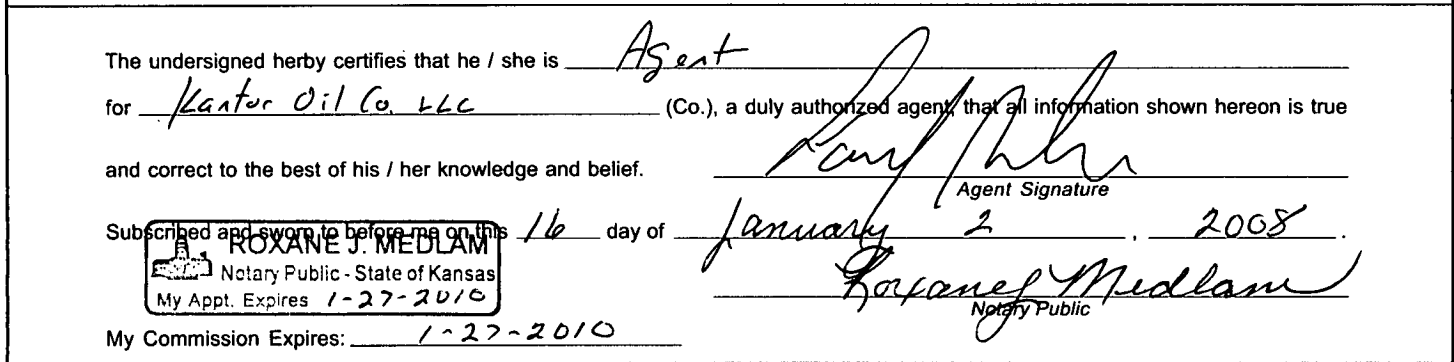 The undersigned herby certifies that he / she is Agent
for Kantor Oil Co. LLC (Co.), a duly authorized agent, that all information shown hereon is true
and correct to the best of his / her knowledge and belief.
Agent Signature
Subscribed and sworn to before me on this 16 day of January 2, 2008.
ROXANE J. MEDLAM
Notary Public - State of Kansas
My Appt. Expires 1-27-2010
Roxane J Medlam
Notary Public
My Commission Expires: 1-27-2010